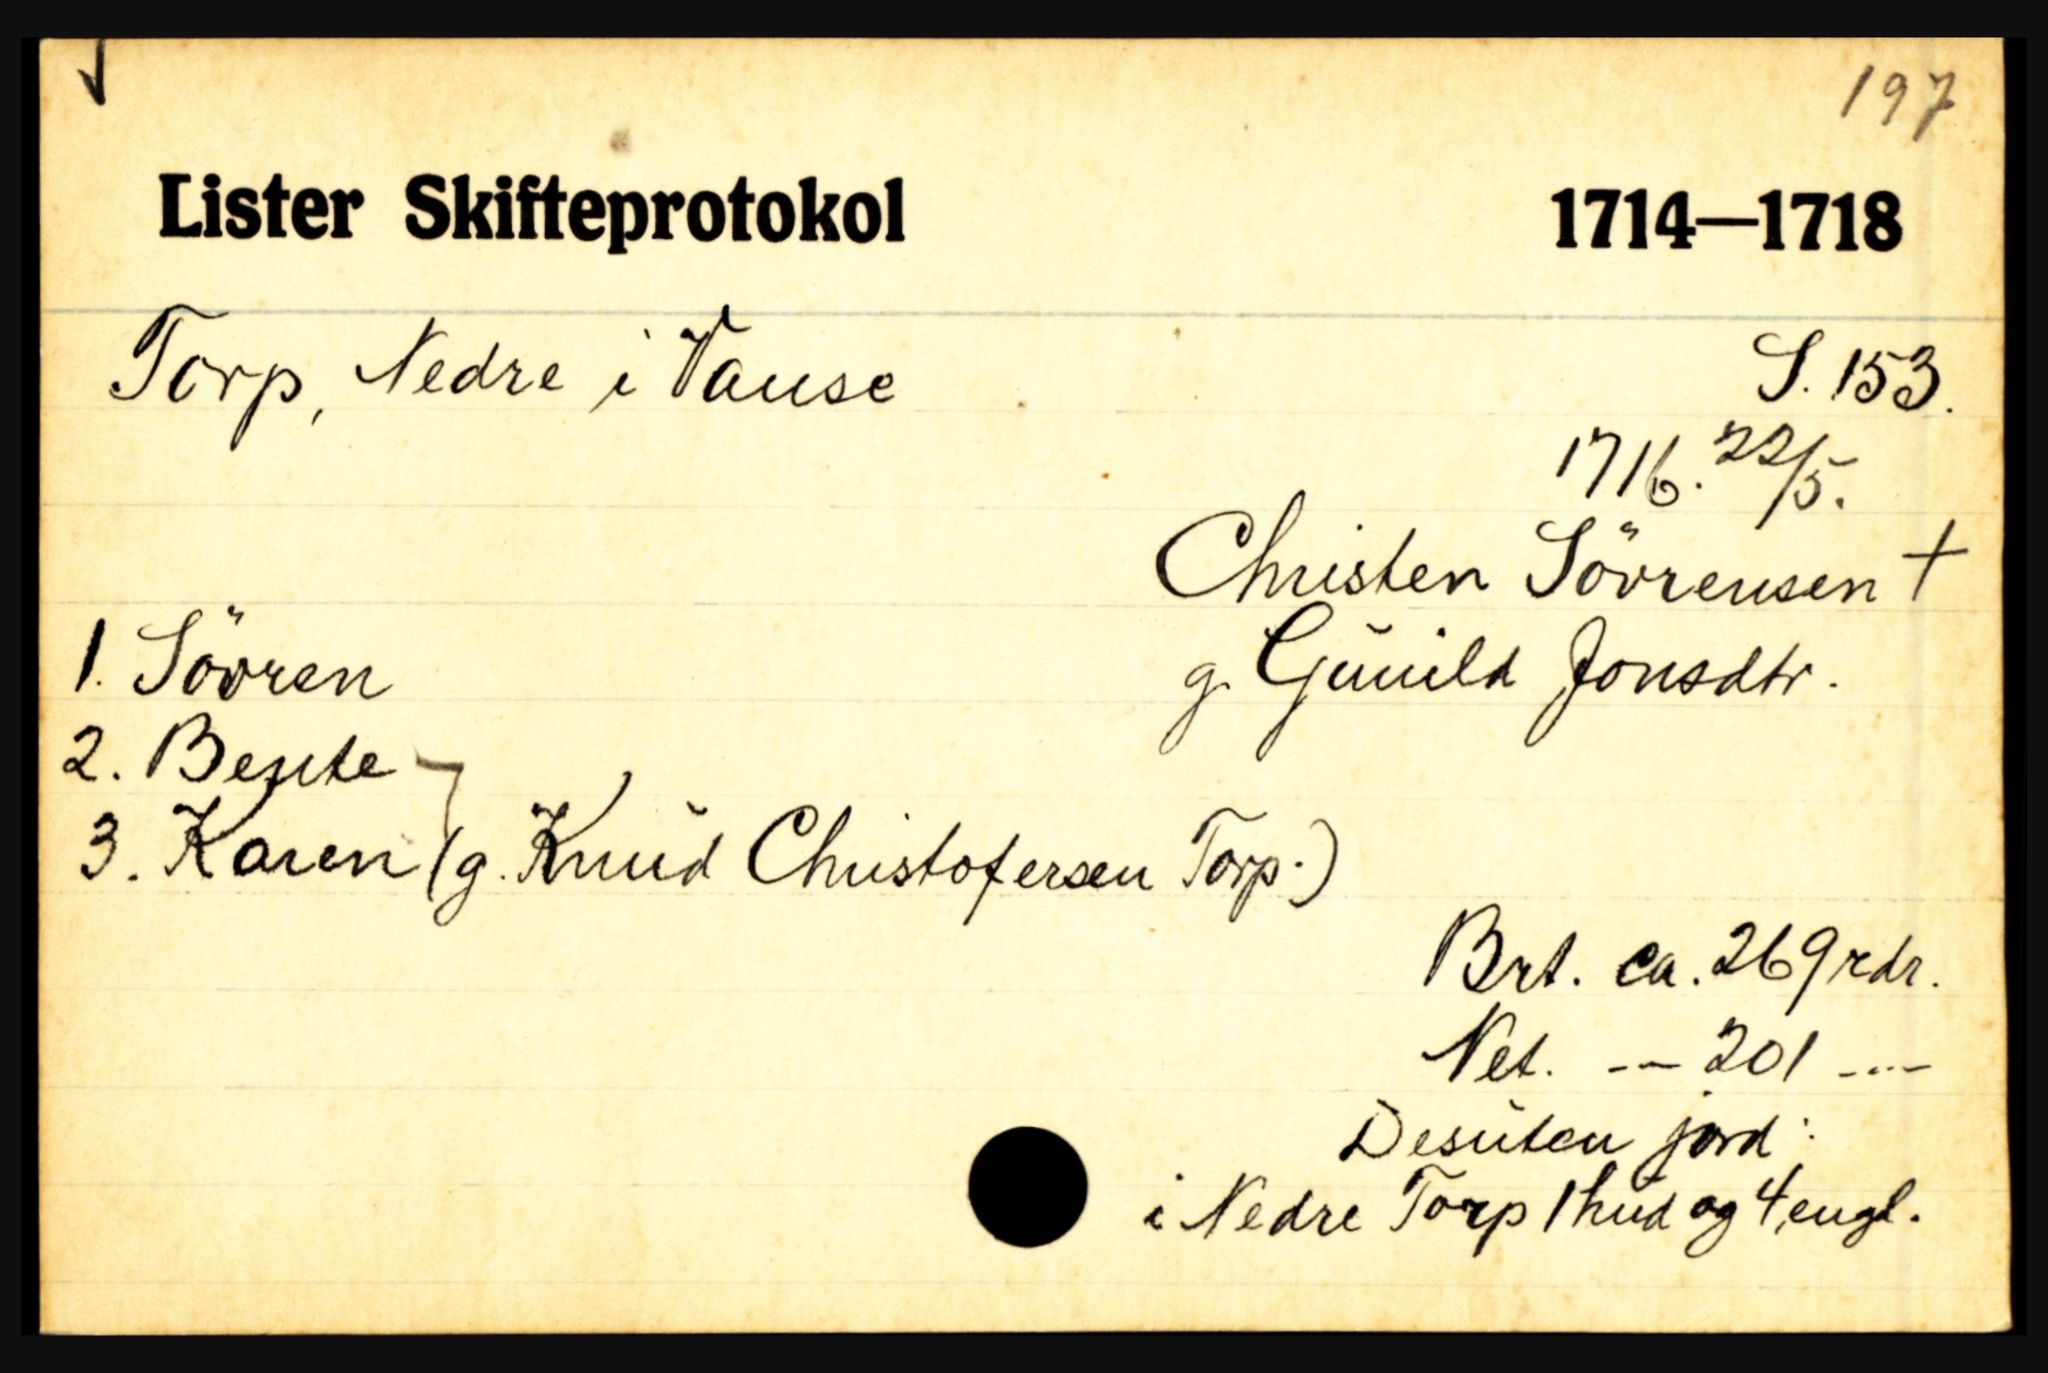 197
Lister Skifteprotokol 1714—1718
Torp, Nedre i Vanse S. 153.
1716. 22/5.
Christen Sövrensen +
1. Sövren g. Gŭnild Jonsdtr.
2. Bente
3. Karen (g. Knŭd Christofersen Torp.)
Brt. ca. 269 rdr.
Net. –– 201 –··–
Desŭten jord:
i Nedre Torp 1 hŭd og 4 engl.